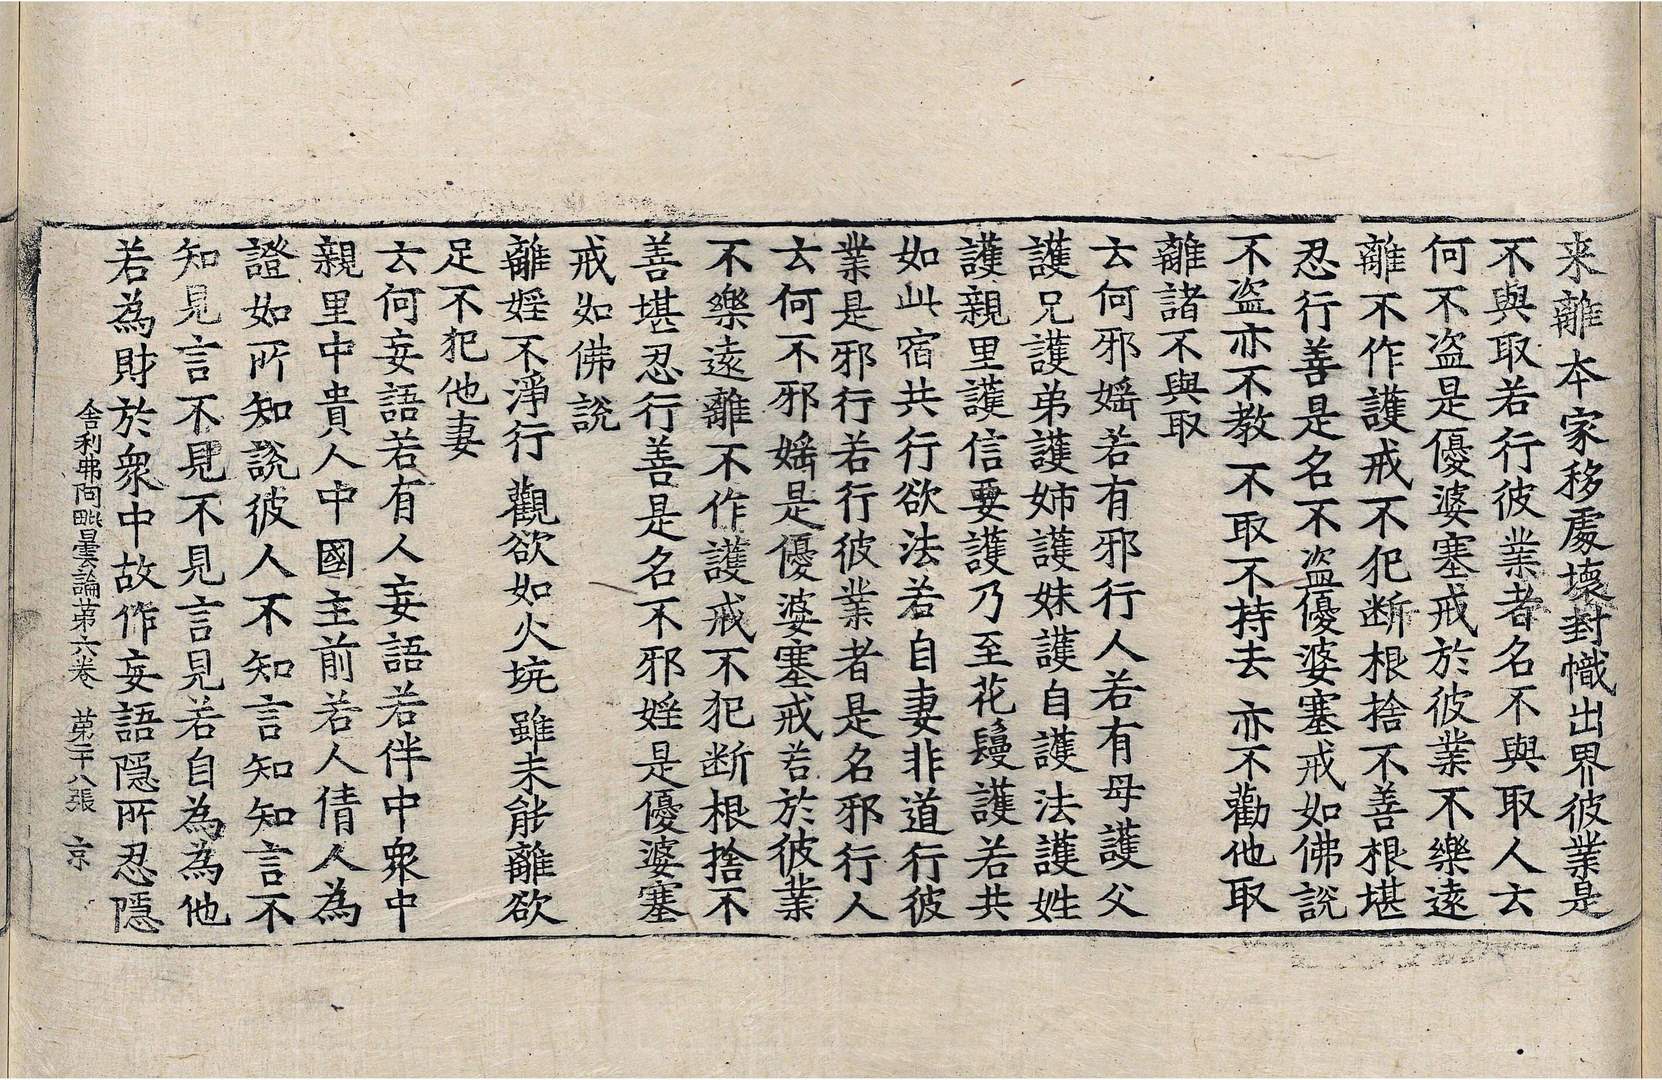 来離本家移處壞封幟出界彼業是
不與取若行彼業者名不與取人云
何不盗是優婆塞戒於彼業不樂遠
離不作護戒不犯断根捨不善根堪
忍行善是名不盗優婆塞戒如佛說
不盗亦不教 不取不持去 亦不勸他取
離諸不與取
云何邪婬若有邪行人若有母護父
護兄護弟護姉護妹護自護法護姓
護親里護信要護乃至花鬘護若共
如此宿共行欲法若自妻非道行彼
業是邪行若行彼業者是名邪行人
云何不邪婬是優婆塞戒若於彼業
不樂遠離不作護戒不犯断根捨不
善堪忍行善是名不邪婬是優婆塞
戒如佛說
離婬不淨行 觀欲如火坑 雖未能離欲
足不犯他妻
云何妄語若有人妄語若伴中衆中
親里中貴人中國主前若人倩人為
證如所知說彼人不知言知知言不
知見言不見不見言見若自為為他
若為財於衆中故作妄語隱所忍隱
舍利弗阿毗曇論第六卷 第二十八張 京